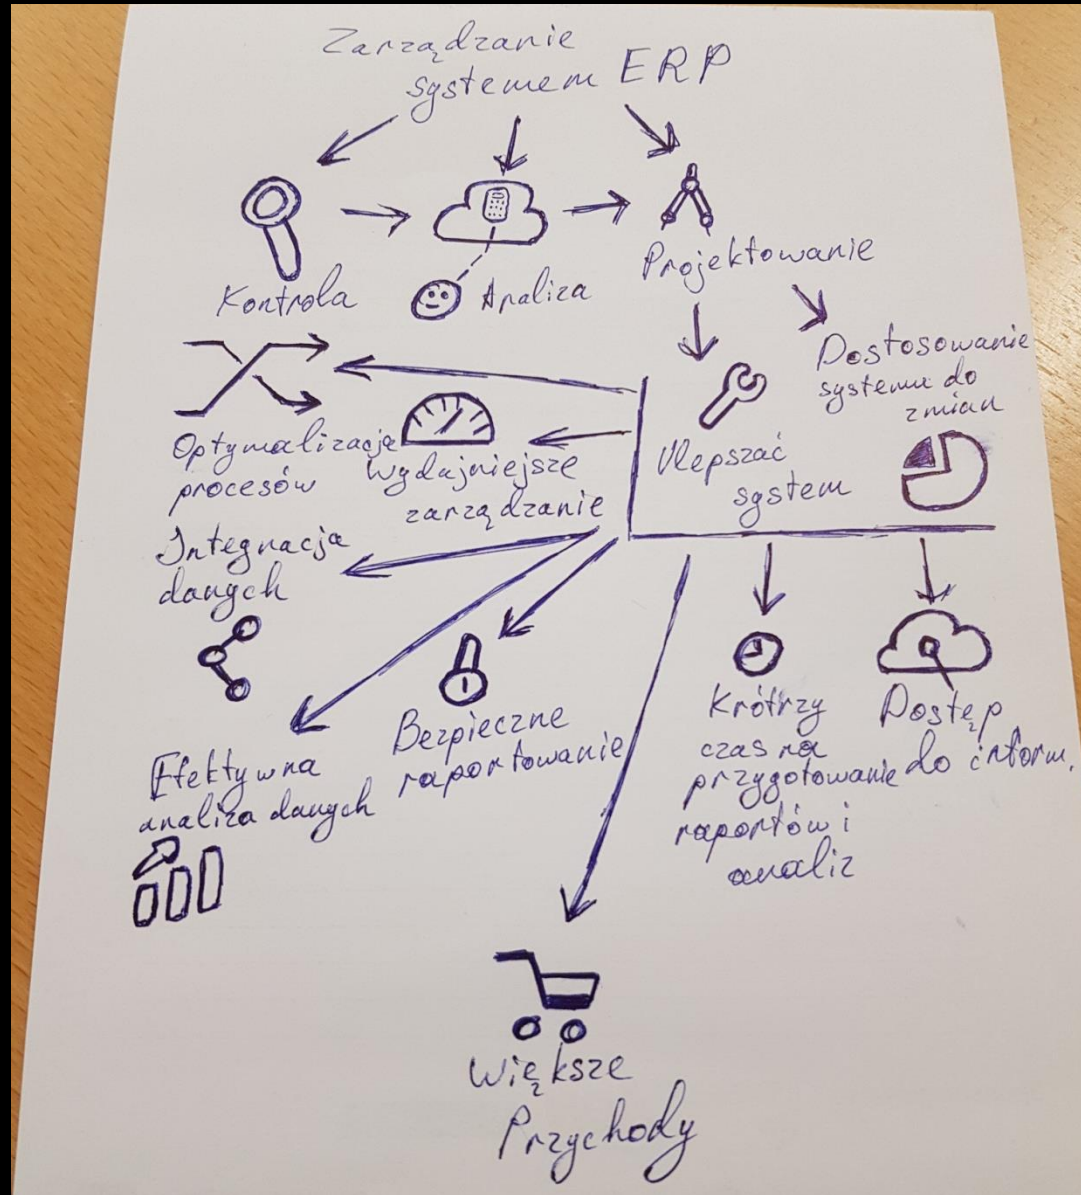 Zarządzanie
systemem ERP
Kontrola
Analiza
Projektowanie
Dostosowanie
systemu do
zmian
Ulepszać
system
Optymalizacja
procesów
Wydajniejsze
zarządzanie
Integracja
danych
Efektywna
analiza danych
Bezpieczne
raportowanie
Krótrzy
czas na
przygotowanie
raportów i
analiz
Dostęp
do inform.
Większe
Przychody